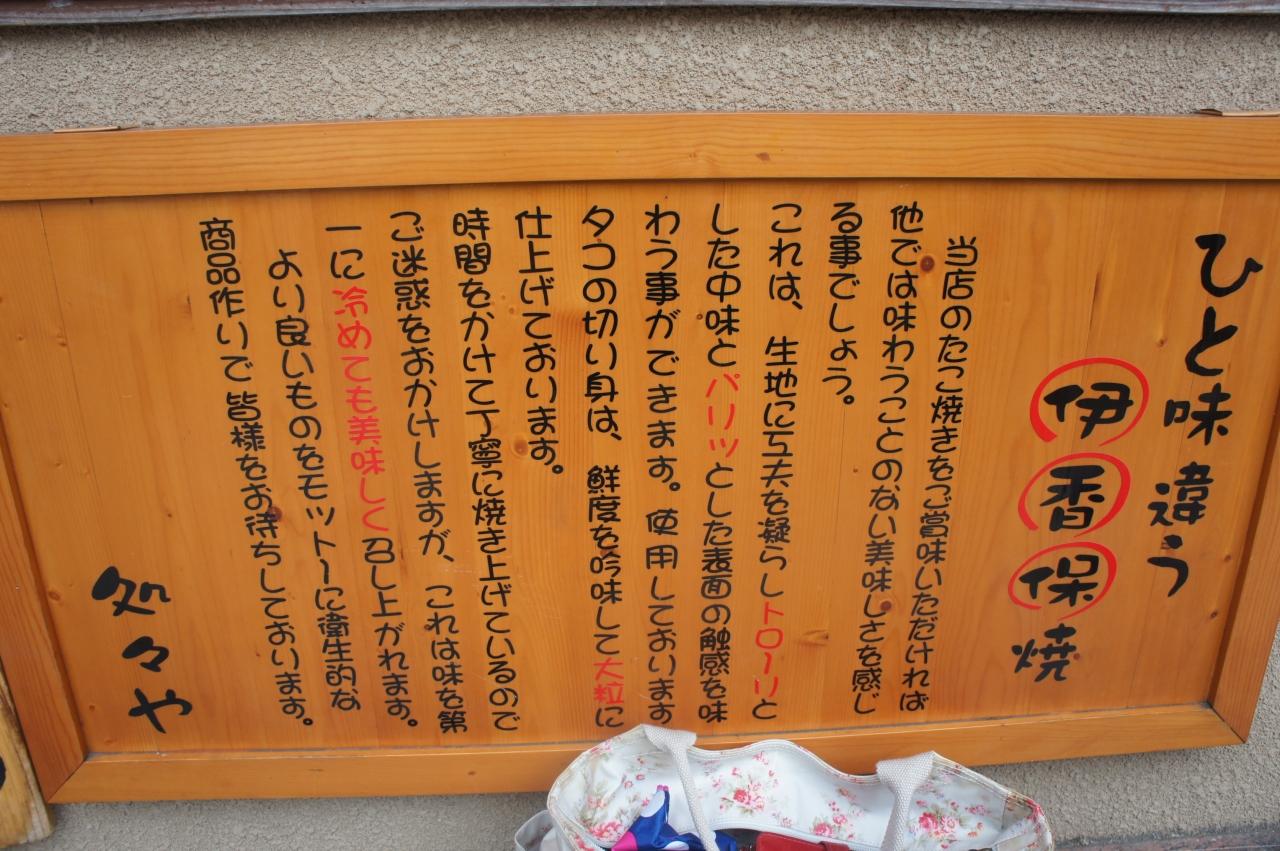 ひと味違う
伊香保焼
当店のたこ焼きをご賞味いただければ
他では味わうことのない美味しさを感じ
る事でしょう。
これは、生地に工夫を凝らしトローリと
した中味とパリッとした表面の触感を味
わう事ができます。使用しております
タコの切り身は、鮮度を吟味して大粒に
仕上げております。
時間をかけて丁寧に焼き上げているので
ご迷惑をおかけしますが、これは味を第
一に冷めても美味しく召し上がれます。
より良いものをモットーに衛生的な
商品作りで皆様をお待ちしております。
処々や